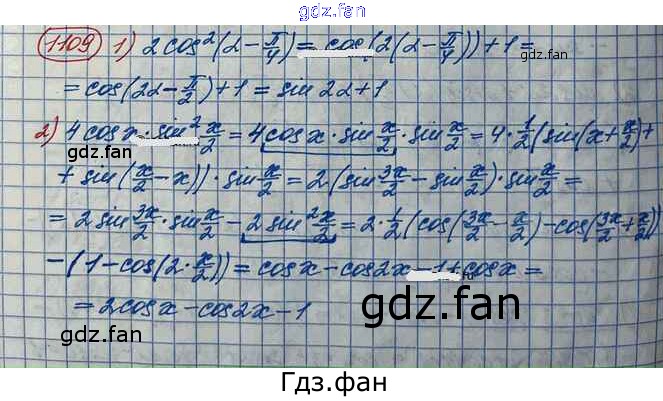 gdz.fan
1109 1) 2cos²(α-π/4) = cos(2(α-π/4))+1 =
= cos(2α-π/2)+1 = sin2α+1
2) 4cosx·sin²x/2 = 4cosx·sin x/2·sin x/2 = 4·1/2(sin(x+x/2)+
+ sin(x/2-x))·sin x/2 = 2(sin 3x/2 - sin x/2)·sin x/2 =
= 2sin 3x/2·sin x/2 - 2sin² x/2 = 2·1/2(cos(3x/2-x/2)-cos(3x/2+x/2))
-(1-cos(2·x/2)) = cosx-cos2x-1+cosx =
= 2cosx-cos2x-1
gdz.fan
gdz.fan
gdz.fan
gdz.fan
Гдз.фан